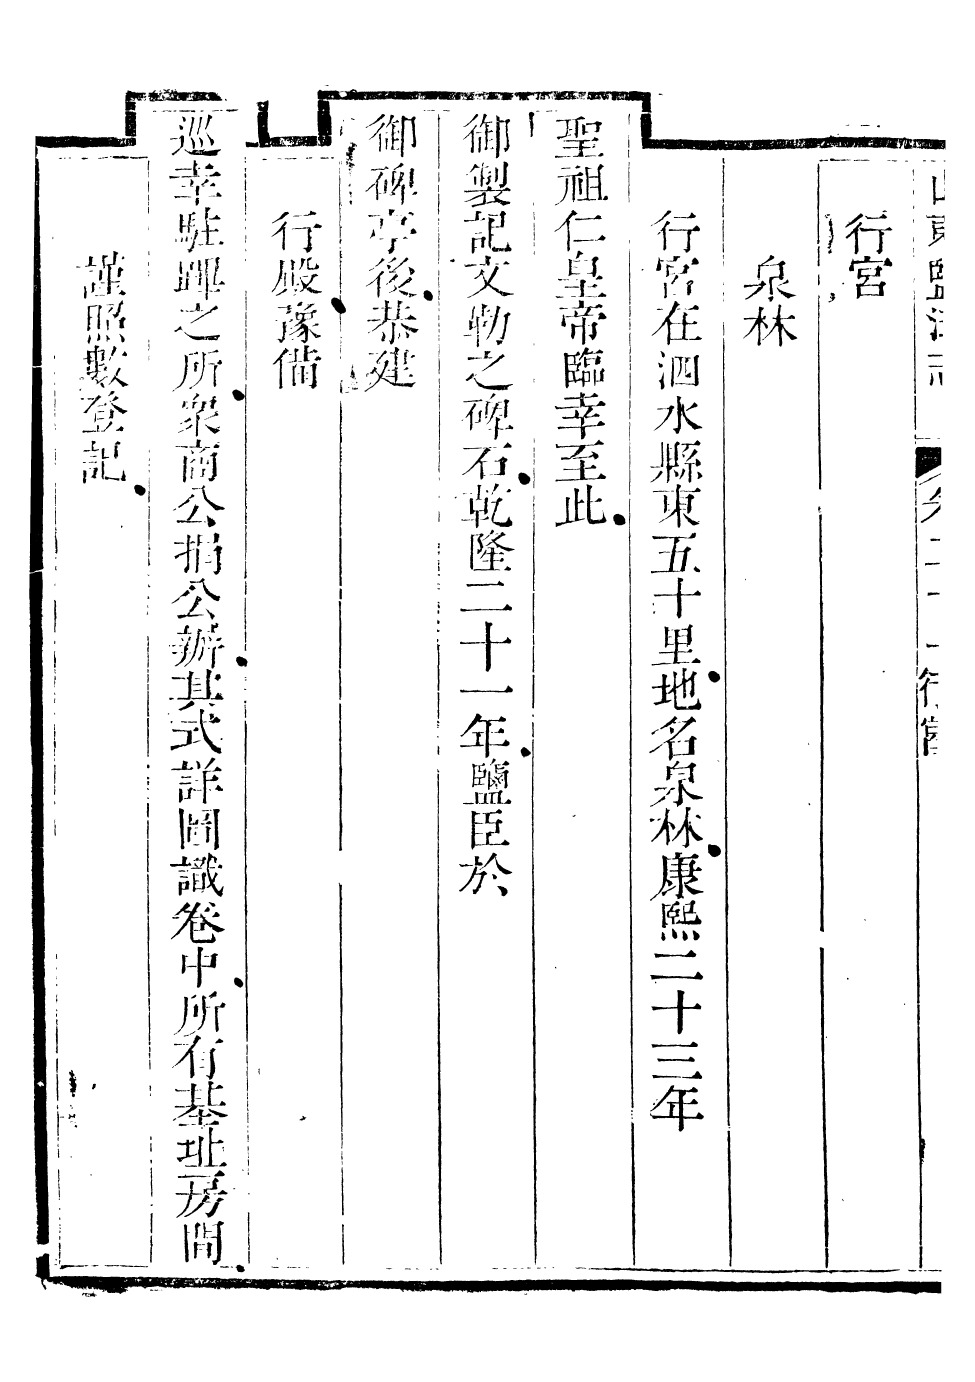 山東鹽法志 卷二十一行宮
行宮
泉林
行宮在泗水縣東五十里地名泉林康熙二十三年
聖祖仁皇帝臨幸至此
御製記文勒之碑石乾隆二十一年鹽臣於
御碑亭後恭建
行殿豫備
巡幸駐蹕之所衆商公捐公辦其式詳圖識卷中所有基址房間
謹照數登記